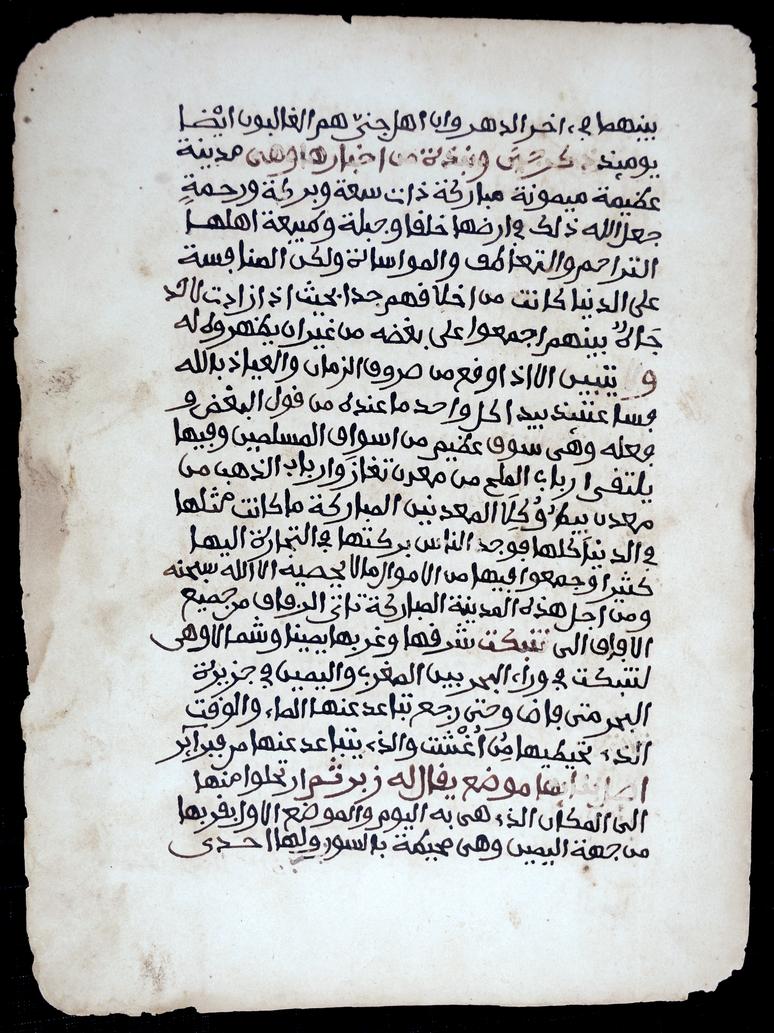 بينهما في اخر الدهر وان اهل جني هم الغالبون ايضا
يومئذ ذكر جني ونبذة من اخبارها وهي مدينة
عظيمة ميمونة مباركة ذات سعة وبركة ورحمة
جعل الله ذلك في ارضها خلقا وجبلة وطبيعة اهلها
التراحم والتعاطف والمواساة ولكن المنافسة
على الدنيا كانت من اخلاقهم جدا بحيث اذا زادت لاحد
جاه بينهم اجمعوا على بغضه من غير ان يظهروه له
و يتبين الا اذا وقع من صروف الزمان والعياذ بالله
فساعتئذ يبدا كل واحد ما عنده من قول البغض و
فعله وهى سوق عظيم من اسواق المسلمين وفيها
يلتقى ارباب الملح من معدن تغاز وارباب الذهب من
معدن بيط وكلا المعدنين المباركة ما كانت مثلها
في الدنيا كلها فوجد الناس بركتها في التجارة اليها
كثيرا وجمعوا فيها من الاموال ما لا يحصيه الا الله سبحنه
ومن اجل هذه المدينة المباركة تاتى الرفاق من جميع
الافاق الى تنبكت شرقها وغربها يمينا وشمالا وهى
لتنبكت في وراء البحر بين المغرب واليمين في جزيرة
البحر متى فاض وحتى رجع تباعد عنها الماء والوقت
الذي تحيط بها من اغشت والذي يتباعد عنها من فبراير
ابتداءها موضع يقال له زبر ثم ارتحلوا منها
الى المكان الذي هى به اليوم والموضع الاول بقربها
من جهة اليمين وهى محيطة بالسور ولها احدى